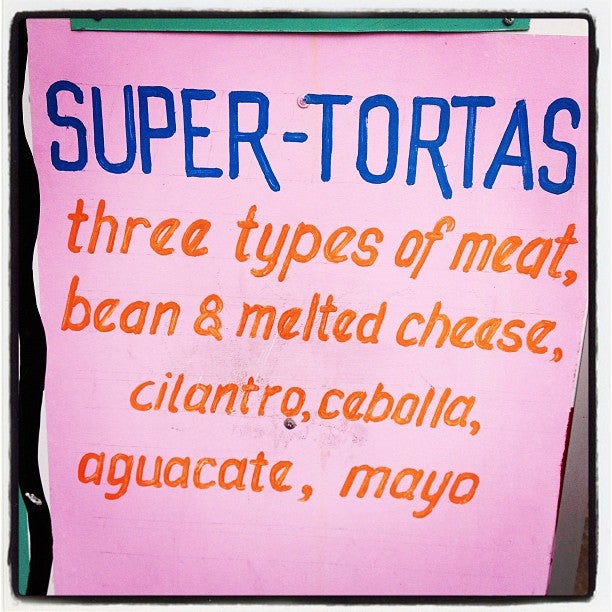 SUPER-TORTAS
three types of meat,
bean & melted cheese,
cilantro, cebolla,
aguacate, mayo